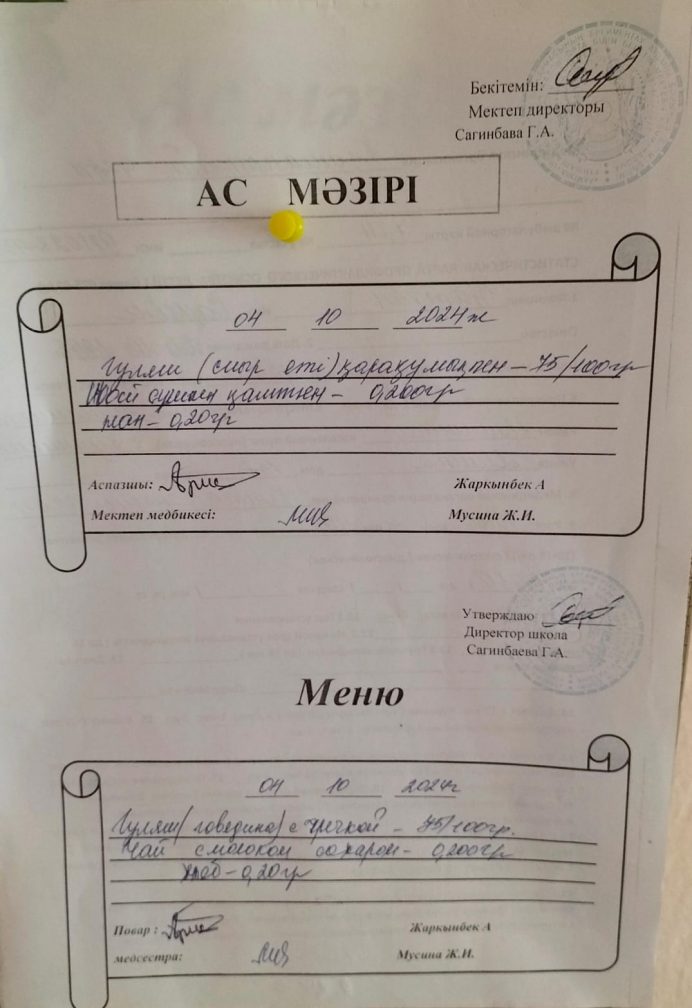 Бекітемін:
Мектеп директоры
Сагинбава Г.А.
АС МӘЗІРІ
04 10 2024ж
Гуляш (сиыр еті) қарақұмықпен – 75/100гр
сүтпен қантпен – 0,200гр
нан – 0,20гр
Аспазшы: Жаркынбек А
Мектеп медбикесі: Мусина Ж.И.
Утверждаю
Директор школа
Сагинбаева Г.А.
Меню
04 10 2024г
Гуляш/говедина/ с гречкой – 75/100гр.
Чай с молоком сахаром – 0,200гр
Хлеб – 0,20гр
Повар : Жаркынбек А
медсестра: Мусина Ж.И.